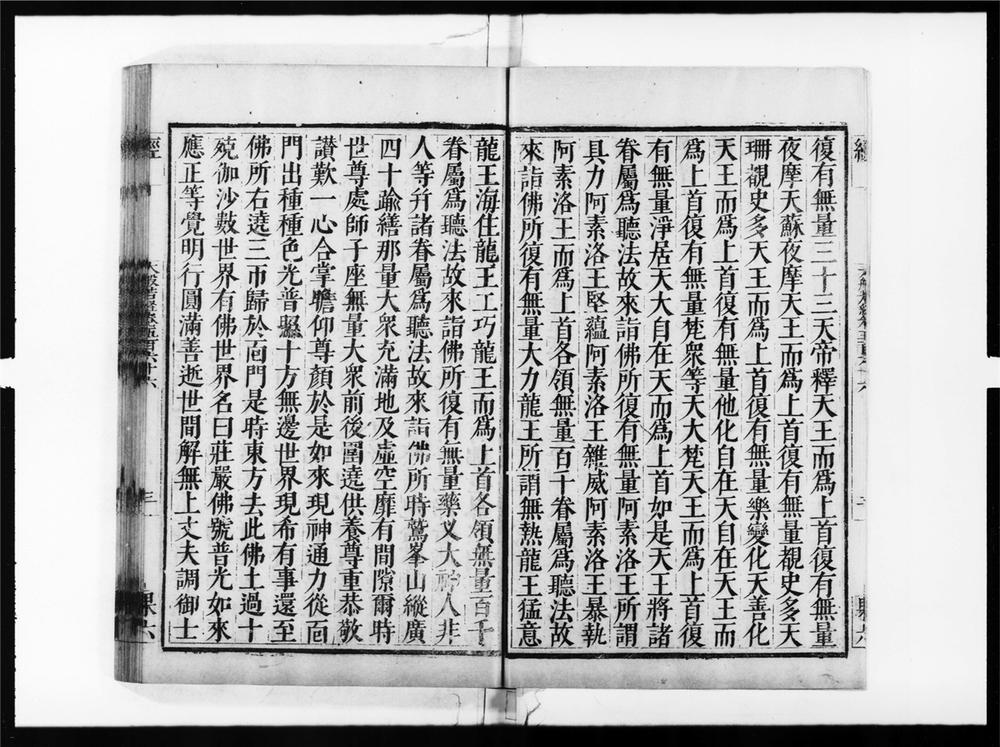 復有無量三十三天帝釋天王而爲上首復有無量
夜摩天蘇夜摩天王而爲上首復有無量覩史多天
珊覩史多天王而爲上首復有無量樂變化天善化
天王而爲上首復有無量他化自在天自在天王而
爲上首復有無量梵衆等天大梵天王而爲上首復
有無量淨居天大自在天而爲上首如是天王將諸
眷屬爲聽法故來詣佛所復有無量阿素洛王所謂
具力阿素洛王堅蘊阿素洛王雜威阿素洛王暴執
阿素洛王而爲上首各領無量百千眷屬爲聽法故
來詣佛所復有無量大力龍王所謂無熱龍王猛意
龍王海住龍王工巧龍王而爲上首各領無量百千
眷屬爲聽法故來詣佛所復有無量藥叉大神人非
人等幷諸眷屬爲聽法故來詣佛所時鷲峯山縱廣
四十踰繕那量大衆充滿地及虛空靡有間隙爾時
世尊處師子座無量大衆前後圍遶供養尊重恭敬
讃歎一心合掌瞻仰尊顏於是如來現神通力從面
門出種種色光普照十方無邊世界現希有事還至
佛所右遶三帀歸於面門是時東方去此佛土過十
殑伽沙數世界有佛世界名曰莊嚴佛號普光如來
應正等覺明行圓滿善逝世間解無上丈夫調御士
經
大般若經卷五百六十六
三
果六